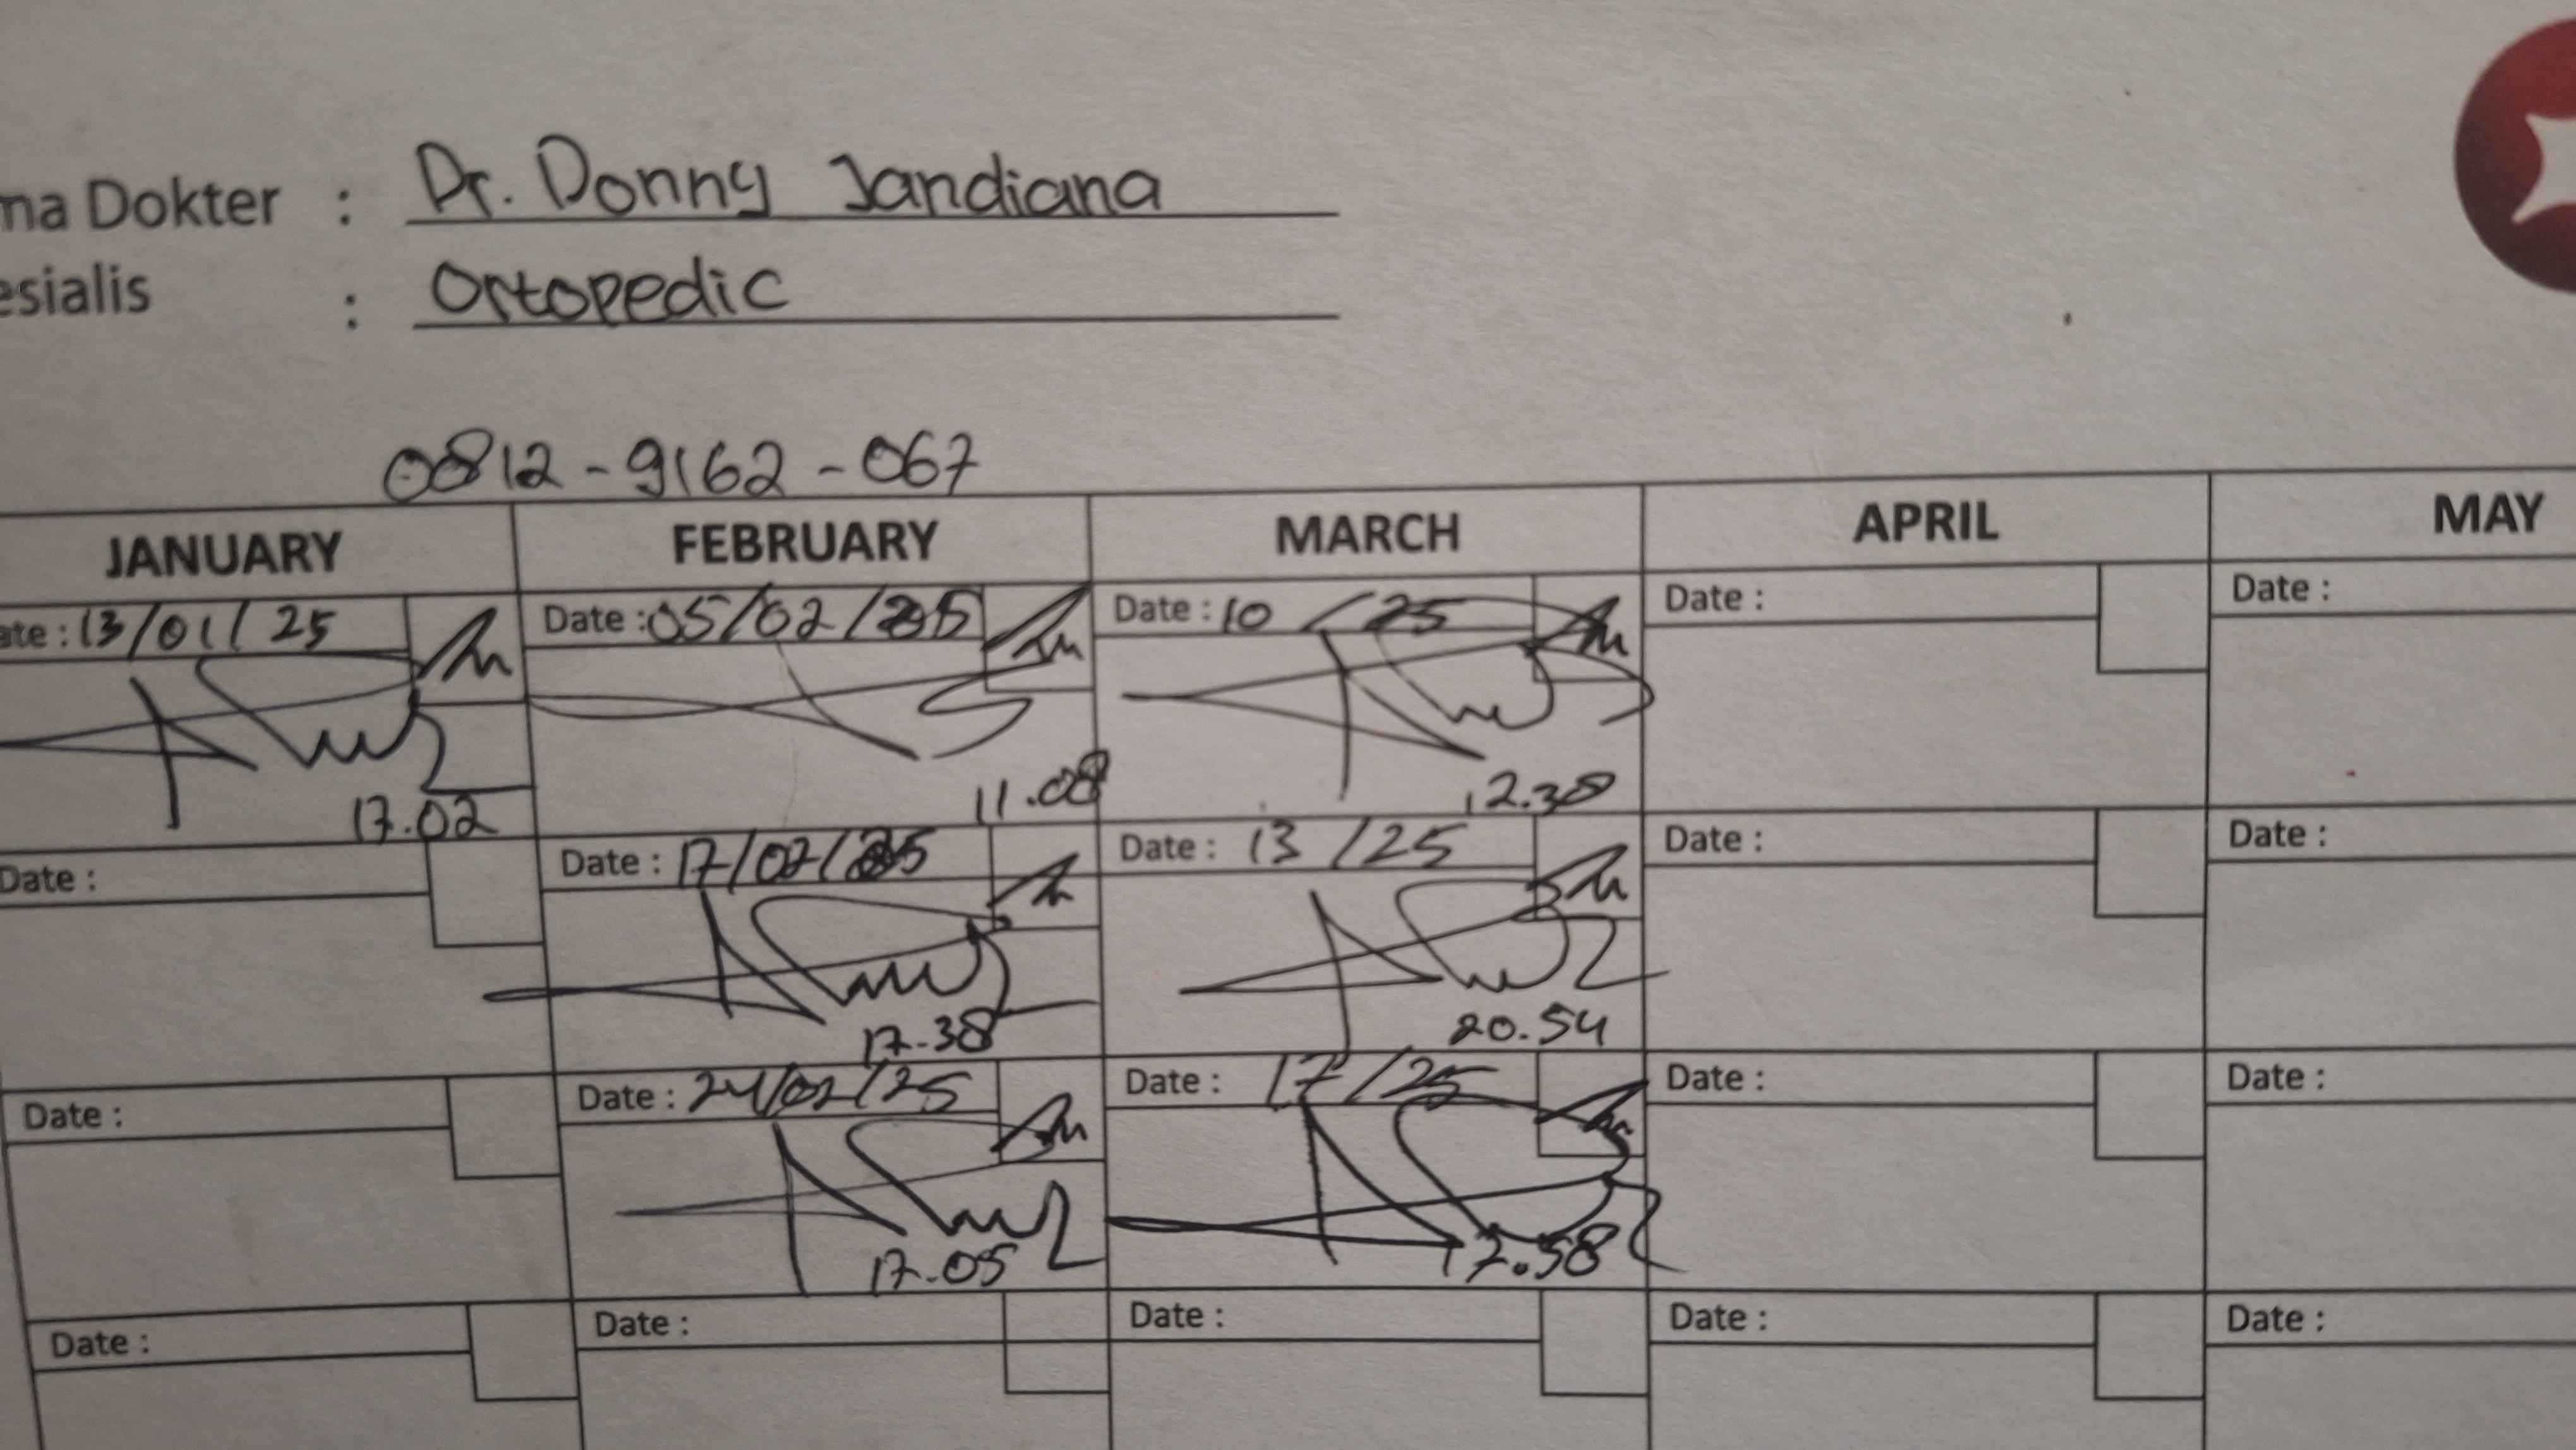 ma Dokter : Dr. Donny Jandiana
esialis : Ortopedic
0812-9162-067
JANUARY FEBRUARY MARCH APRIL MAY
ate : 13/01/25 Date : 05/02/25 Date : 10 /25 Date : Date :
17.02 11.08 12.38
Date : Date : 17/02/25 Date : 13 /25 Date : Date :
17.38 20.54
Date : Date : 24/02/25 Date : 17/25 Date : Date :
17.05 17.58
Date : Date : Date : Date : Date :